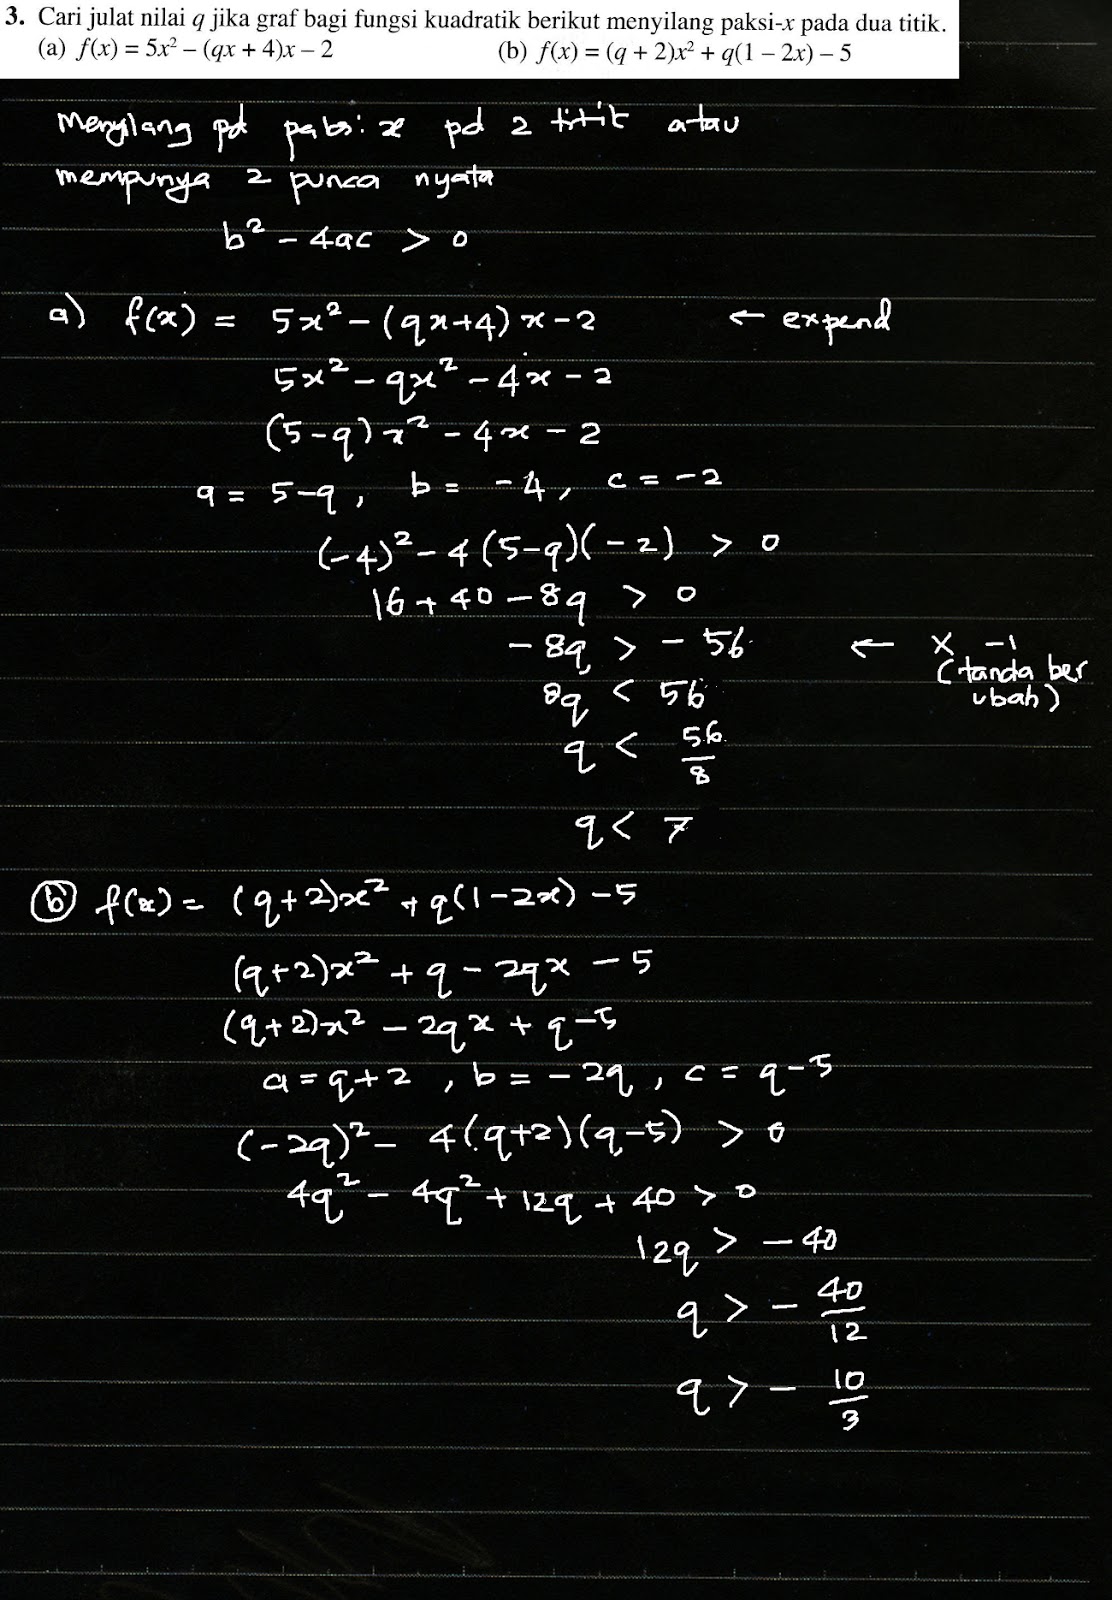 3. Cari julat nilai q jika graf bagi fungsi kuadratik berikut menyilang paksi-x pada dua titik.
(a) f(x) = 5x² – (qx + 4)x – 2 (b) f(x) = (q + 2)x² + q(1 – 2x) – 5
menyilang pd paksi x pd 2 titik atau
mempunya 2 punca nyata
b² - 4ac > 0
a) f(x) = 5x² - (qx+4)x - 2 ← expend
5x² - qx² - 4x - 2
(5-q)x² - 4x - 2
a = 5-q, b = -4, c = -2
(-4)² - 4(5-q)(-2) > 0
16 + 40 - 8q > 0
-8q > -56 ← x -1
(tanda ber
ubah)
8q < 56
q < 56/8
q < 7
(b) f(x) = (q+2)x² + q(1-2x) - 5
(q+2)x² + q - 2qx - 5
(q+2)x² - 2qx + q-5
a = q+2, b = -2q, c = q-5
(-2q)² - 4(q+2)(q-5) > 0
4q² - 4q² + 12q + 40 > 0
12q > -40
q > - 40/12
q > - 10/3